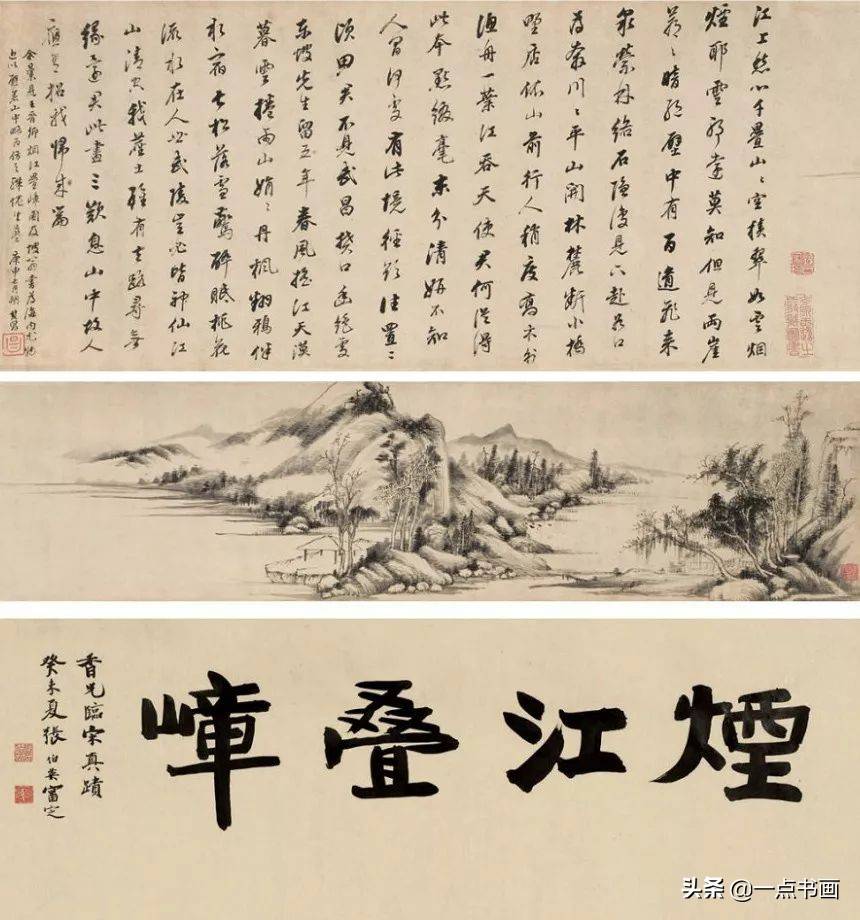 江上愁心千疊山〻空積翠如雲烟
煙耶雲耶遠莫知但見兩崖
蒼〻暗絕壁中有百道飛來
泉縈林絡石隱復見下赴谷口
為奔川〻平山開林麓斷小橋
野店依山前行人稍度喬木外
漁舟一葉江吞天使君何從得
此本點綴毫末分清妍不知
人間何處有此境徑欲往置二
頃田君不見武昌樊口幽絕處
東坡先生留五年春風搖江天漠
暮雲捲雨山娟〻丹楓翻鴉伴
水宿長松落雪驚醉眠桃花
流水在人世武陵豈必皆神仙江
山清空我塵土雖有去路尋無
緣還君此畫三歎息山中故人
應有招我歸來篇
余曩見王晉卿烟江疊嶂圖及坡翁書為海內尤物
山中 庚申 其昌
煙江叠嶂
香光臨宋真蹟
癸未夏張伯英審定
头条 @一点书画